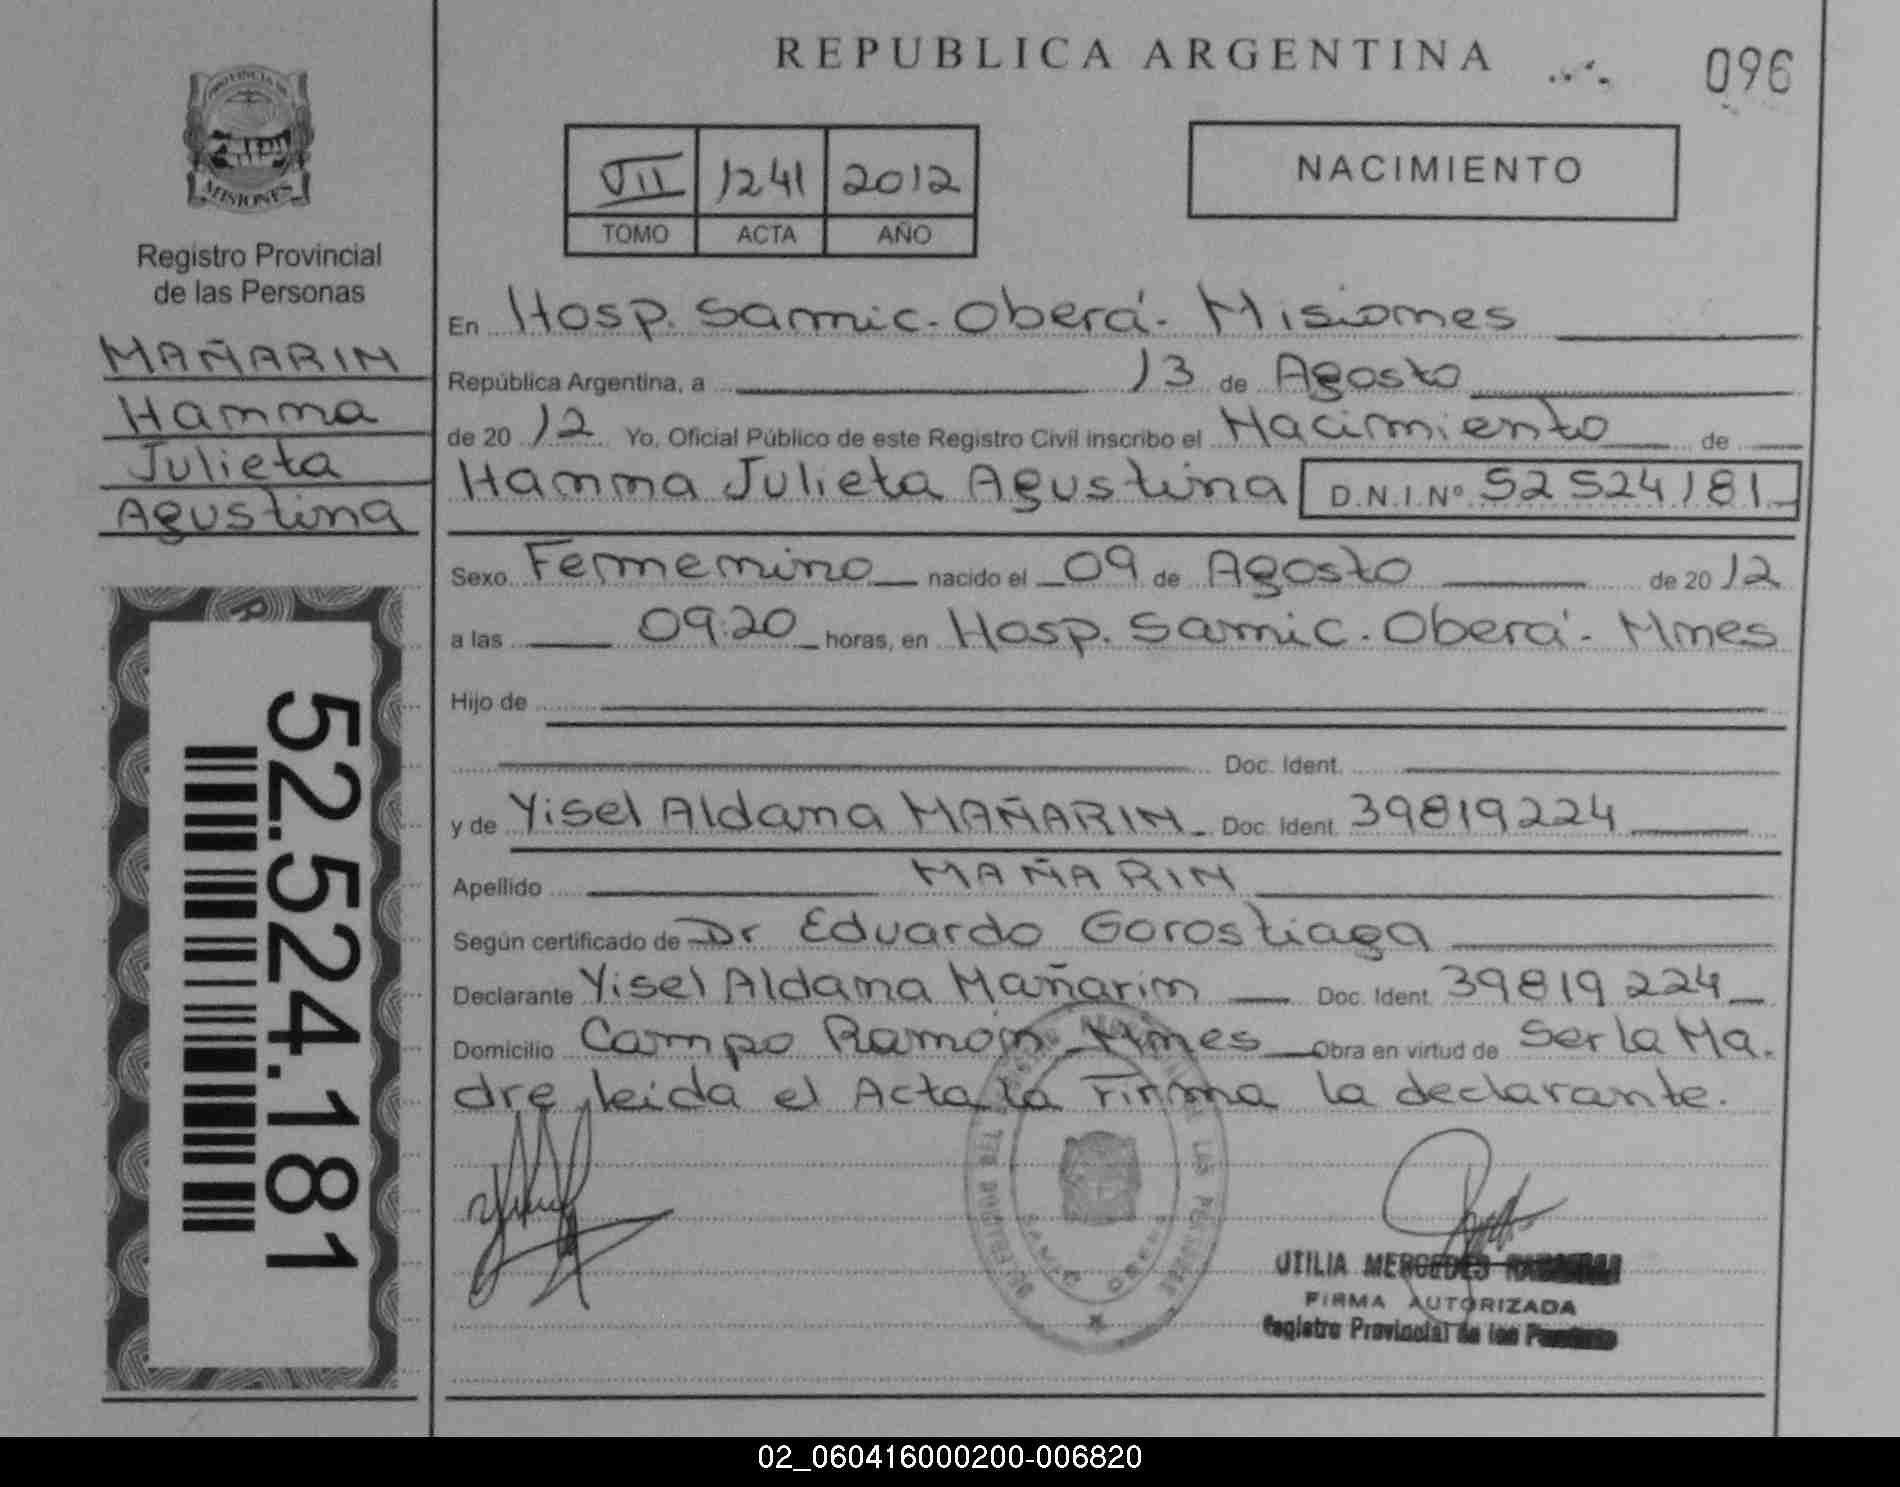 PROVINCIA DE
MISIONES
Registro Provincial
de las Personas
MAÑARIN
Hanna
Julieta
Agustina
52.524.181
REPUBLICA ARGENTINA
096
VII 1241 2012
TOMO ACTA AÑO
NACIMIENTO
En Hosp. Samic. Oberá. Misiones
República Argentina, a 13 de Agosto
de 2012 Yo, Oficial Público de este Registro Civil inscribo el Nacimiento de
Hanna Julieta Agustina D.N.I.Nº 52524181
Sexo Femenino nacido el 09 de Agosto de 2012
a las 09:20 horas, en Hosp. Samic. Oberá. Mnes
Hijo de
Doc. Ident.
y de Yisel Aldana MAÑARIN Doc. Ident. 39819224
Apellido MAÑARIN
Según certificado de Dr Eduardo Gorostiaga
Declarante Yisel Aldana Mañarin Doc. Ident. 39819224
Domicilio Campo Ramón Mnes Obra en virtud de Ser la Ma.
dre, leida el Acta la Firma la declarante.
SAMIC OBERA
OTILIA MERCEDES
FIRMA AUTORIZADA
Registro Provincial de las Personas
02_060416000200-006820